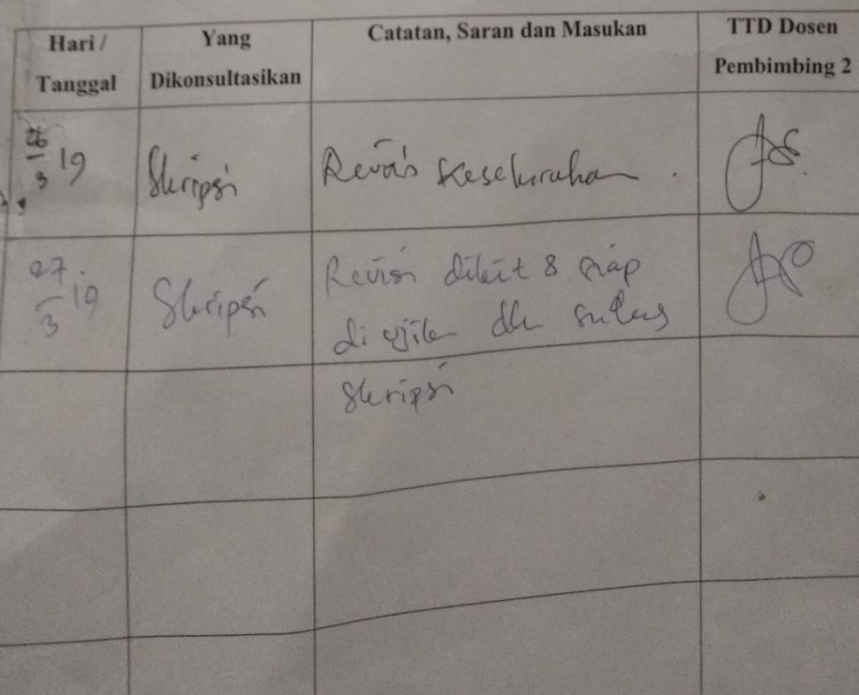 Hari / Tanggal
Yang Dikonsultasikan
Catatan, Saran dan Masukan
TTD Dosen Pembimbing 2
26/3 19
Skripsi
Revisi Keseluruhan .
27/3 19
Skripsi
Revisi dikit & siap
di ujikan dlm
Skripsi